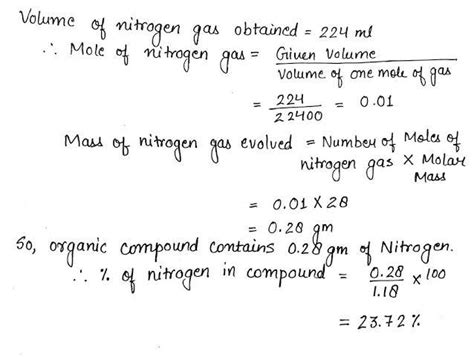 Volume of nitrogen gas obtained = 224 ml
∴ Mole of nitrogen gas = Given Volume / Volume of one mole of gas
= 224 / 22400 = 0.01
Mass of nitrogen gas evolved = Number of Moles of nitrogen gas × Molar Mass
= 0.01 X 28
= 0.28 gm
So, organic compound contains 0.28 gm of Nitrogen.
∴ % of nitrogen in compound = 0.28 / 1.18 × 100
= 23.72 %